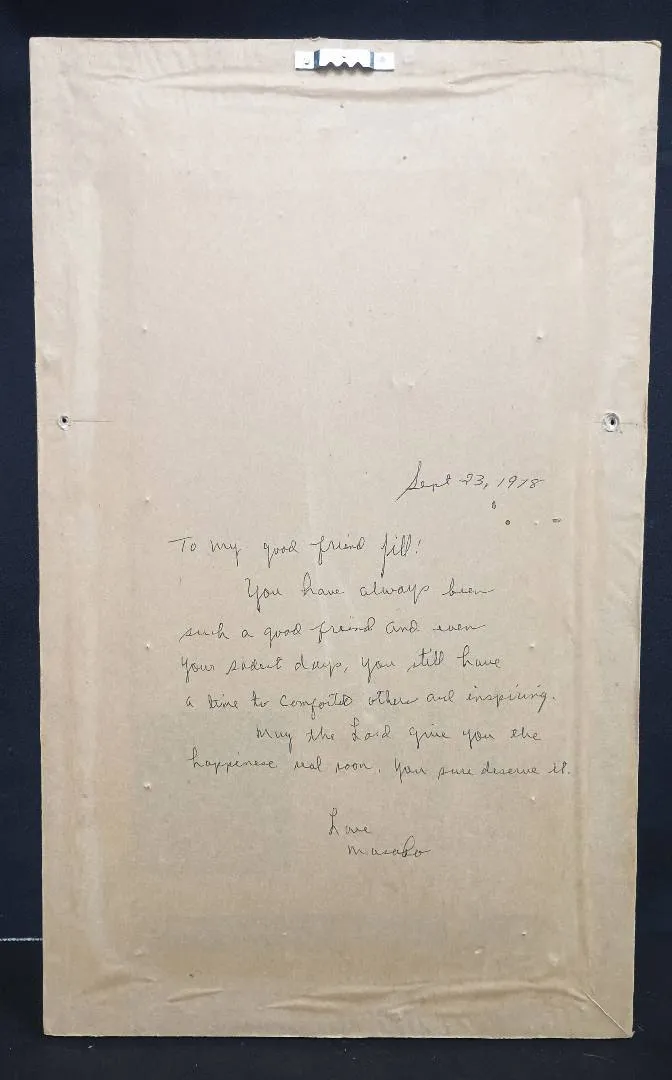 Sept 23, 1978
To my good friend Jill!
You have always been
such a good freind and even
your sadest days, you still have
a time to comforted others and inspiring.
May the Lord give you the
happiness real soon. You sure deserve it.
Love
Masako